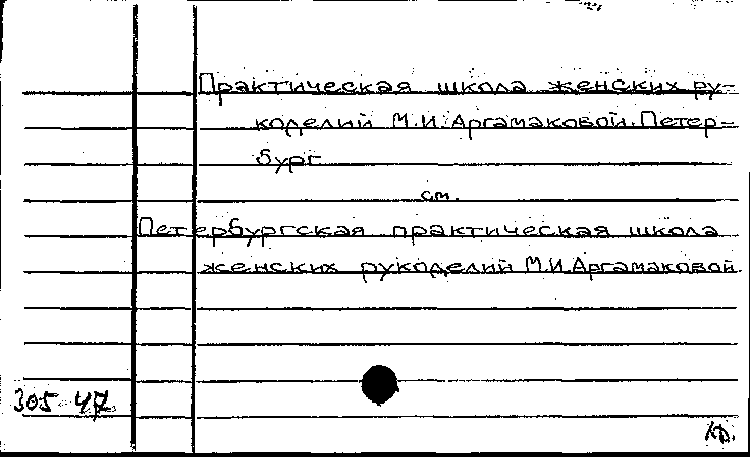 Практическая школа женских ру-
коделий М.И.Аргамаковой. Петер-
бург
см.
Петербургская практическая школа
женских рукоделий М.И.Аргамаковой.
305 47